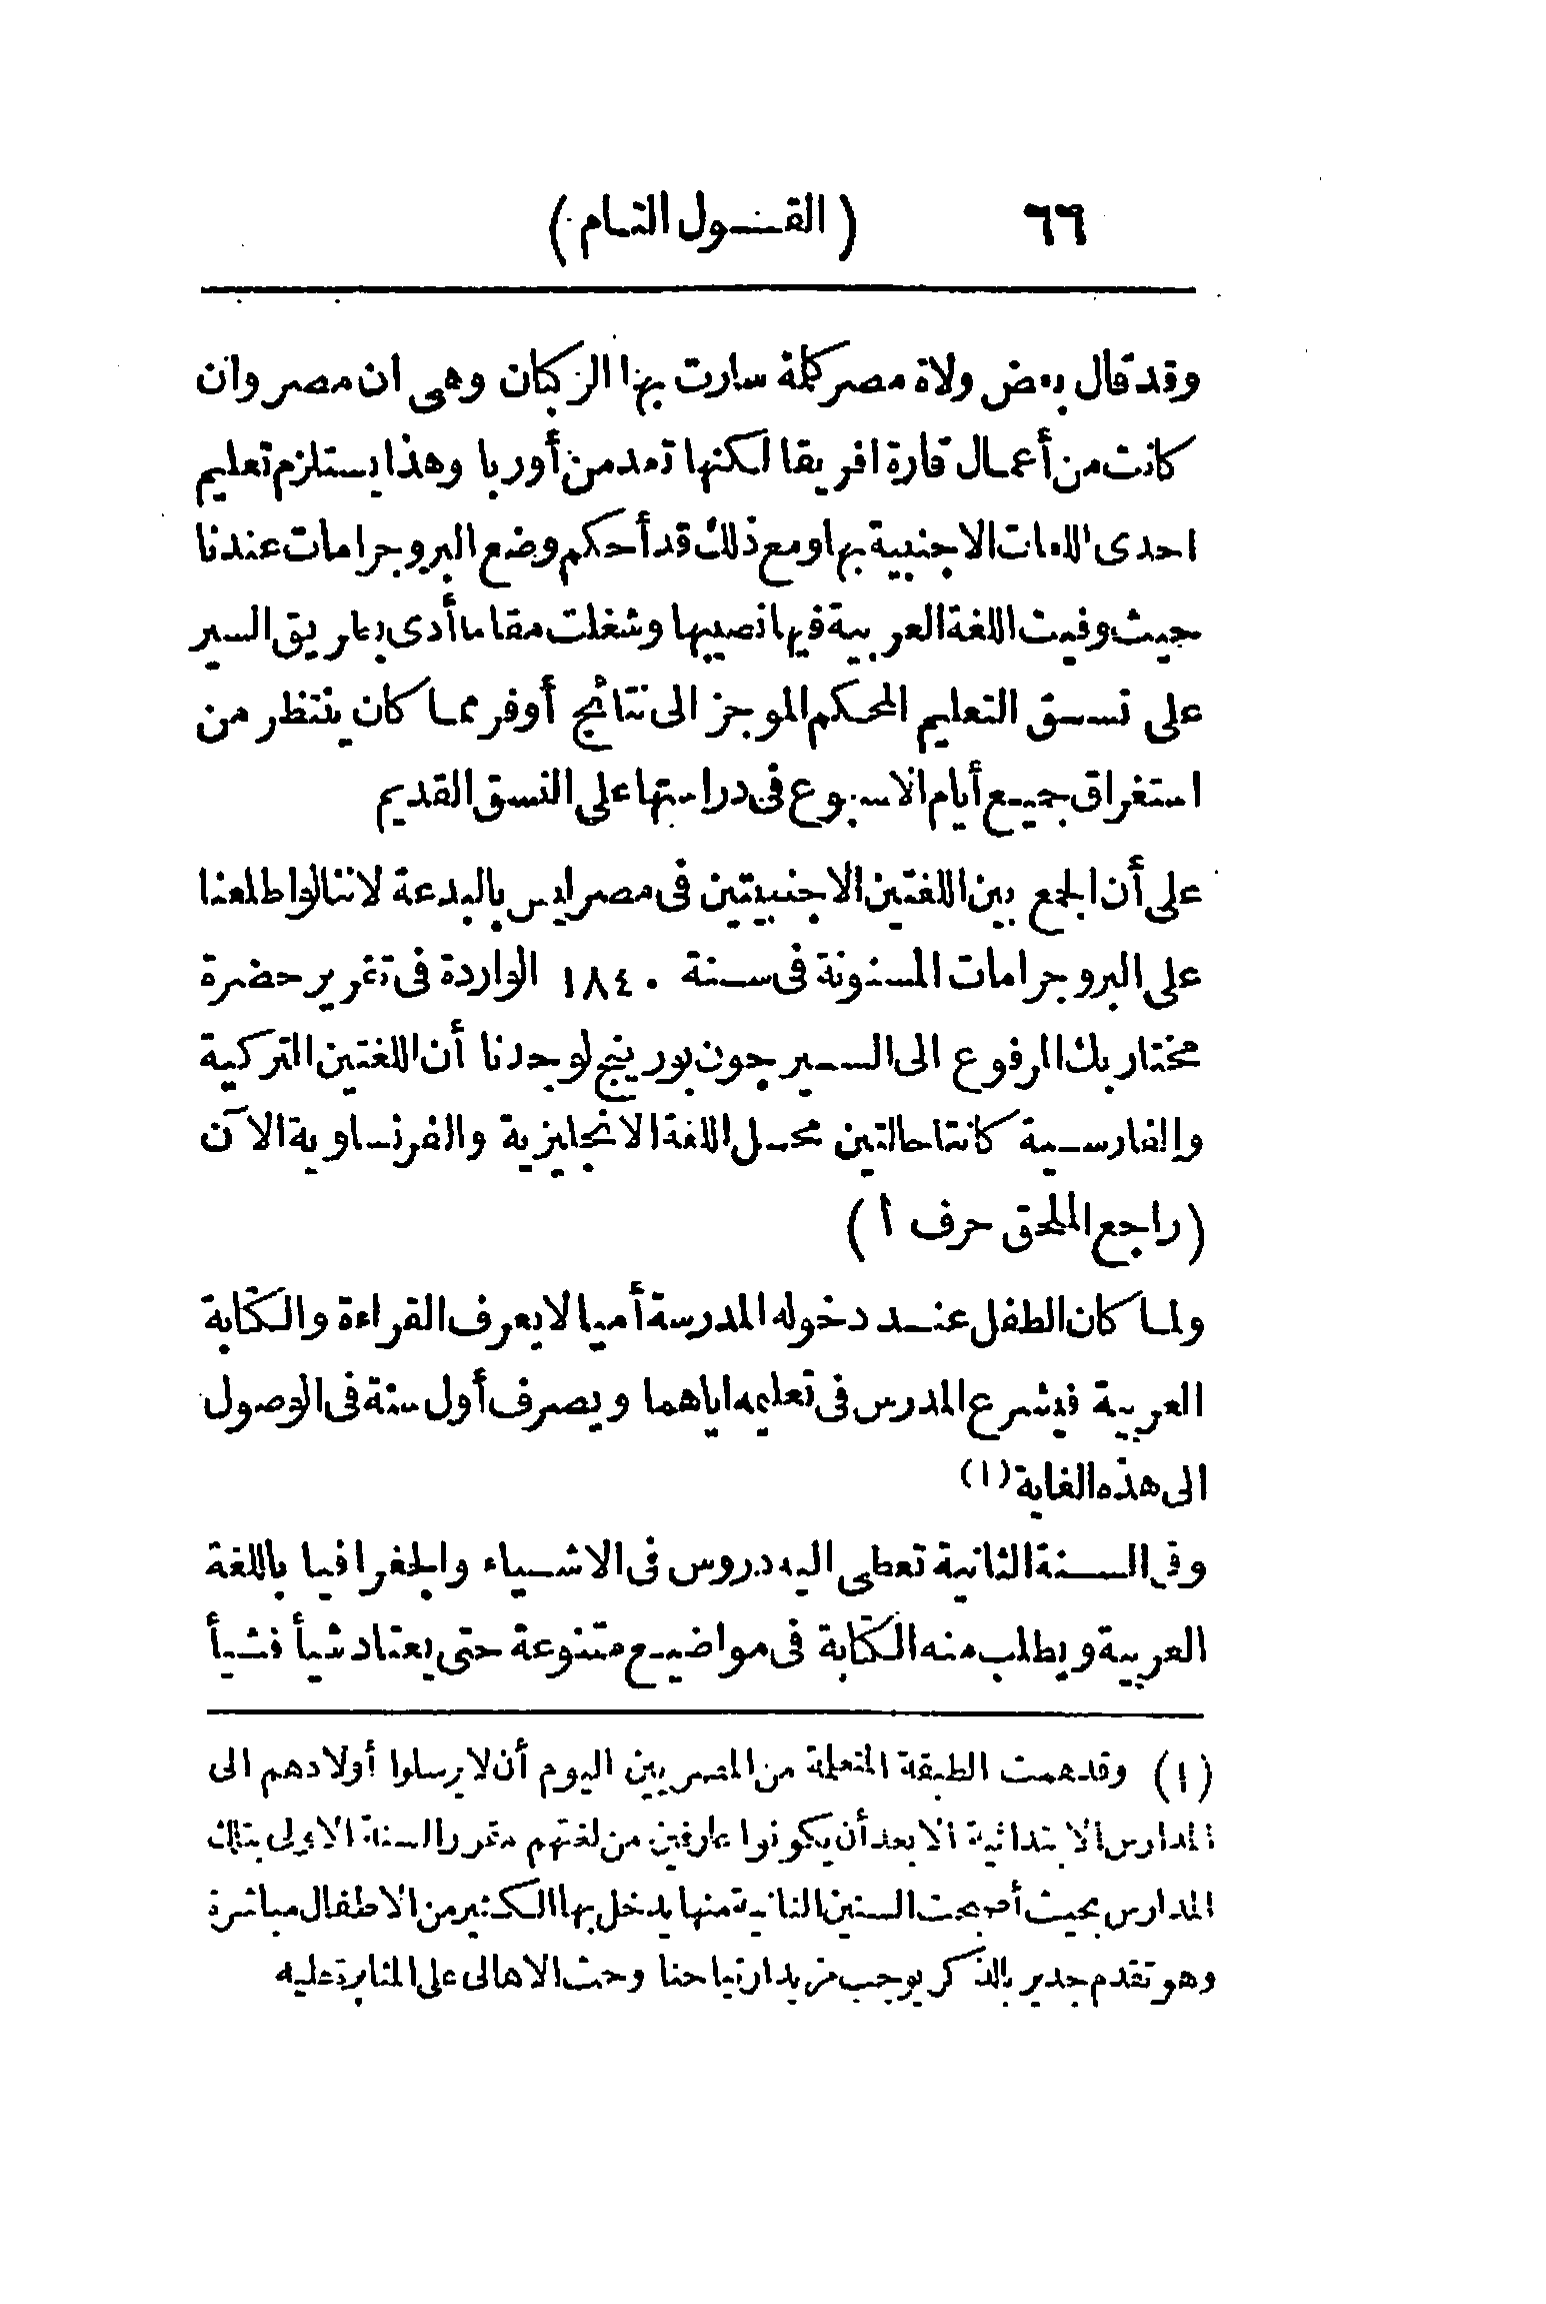 ٦٦ (القول التام)
وقد قال بعض ولاة مصر كلمة سارت بها الركبان وهى ان مصر وان
كانت من أعمال قارة افريقا لكنها تعد من أوربا وهذا يستلزم تعليم
احدى اللغات الاجنبية بها ومع ذلك قد أحكم وضع البروجرامات عندنا
حيث وفيت اللغة العربية فيها نصيبها وشغلت مقاما أدى بطريق السير
على نسق التعليم المحكم الموجز الى نتائج أوفر مما كان ينتظر من
استغراق جميع أيام الاسبوع فى دراستها على النسق القديم
على أن الجمع بين اللغتين الاجنبيتين فى مصر ليس بالبدعة لاننا لو اطلعنا
على البروجرامات المسنونة فى سنة ١٨٤٠ الواردة فى تقرير حضرة
مختار بك المرفوع الى السير جون بورينج لوجدنا أن اللغتين التركية
والفارسية كانتا حالتين محل اللغة الانجليزية والفرنساوية الآن
(راجع الملحق حرف أ)
ولما كان الطفل عند دخوله المدرسة أميا لا يعرف القراءة والكتابة
العربية فيشرع المدرس فى تعليمه اياهما ويصرف أول سنة فى الوصول
الى هذه الغاية (١)
وفى السنة الثانية تعطى اليه دروس فى الاشياء والجغرافيا باللغة
العربية ويطلب منه الكتابة فى مواضيع متنوعة حتى يعتاد شيأ فشيأ
(١) وقد همت الطبقة المتعلمة من المصريين اليوم أن لا يرسلوا أولادهم الى
المدارس الابتدائية الا بعد أن يكونوا عارفين من لغتهم مقرر السنة الاولى بتلك
المدارس بحيث أصبحت السنين الثانية منها يدخل بها الكثير من الاطفال مباشرة
وهو تقدم جدير بالذكر يوجب مزيد ارتياحنا وحث الاهالى على المثابرة عليه